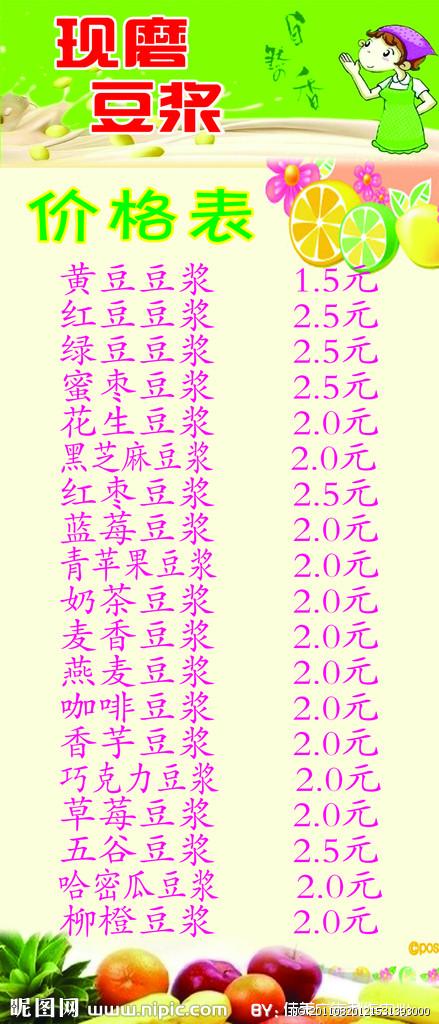 现磨
豆浆
自然の香
价格表
黄豆豆浆 1.5元
红豆豆浆 2.5元
绿豆豆浆 2.5元
蜜枣豆浆 2.5元
花生豆浆 2.0元
黑芝麻豆浆 2.0元
红枣豆浆 2.5元
蓝莓豆浆 2.0元
青苹果豆浆 2.0元
奶茶豆浆 2.0元
麦香豆浆 2.0元
燕麦豆浆 2.0元
咖啡豆浆 2.0元
香芋豆浆 2.0元
巧克力豆浆 2.0元
草莓豆浆 2.0元
五谷豆浆 2.5元
哈密瓜豆浆 2.0元
柳橙豆浆 2.0元
©pos
昵图网 www.nipic.com BY: